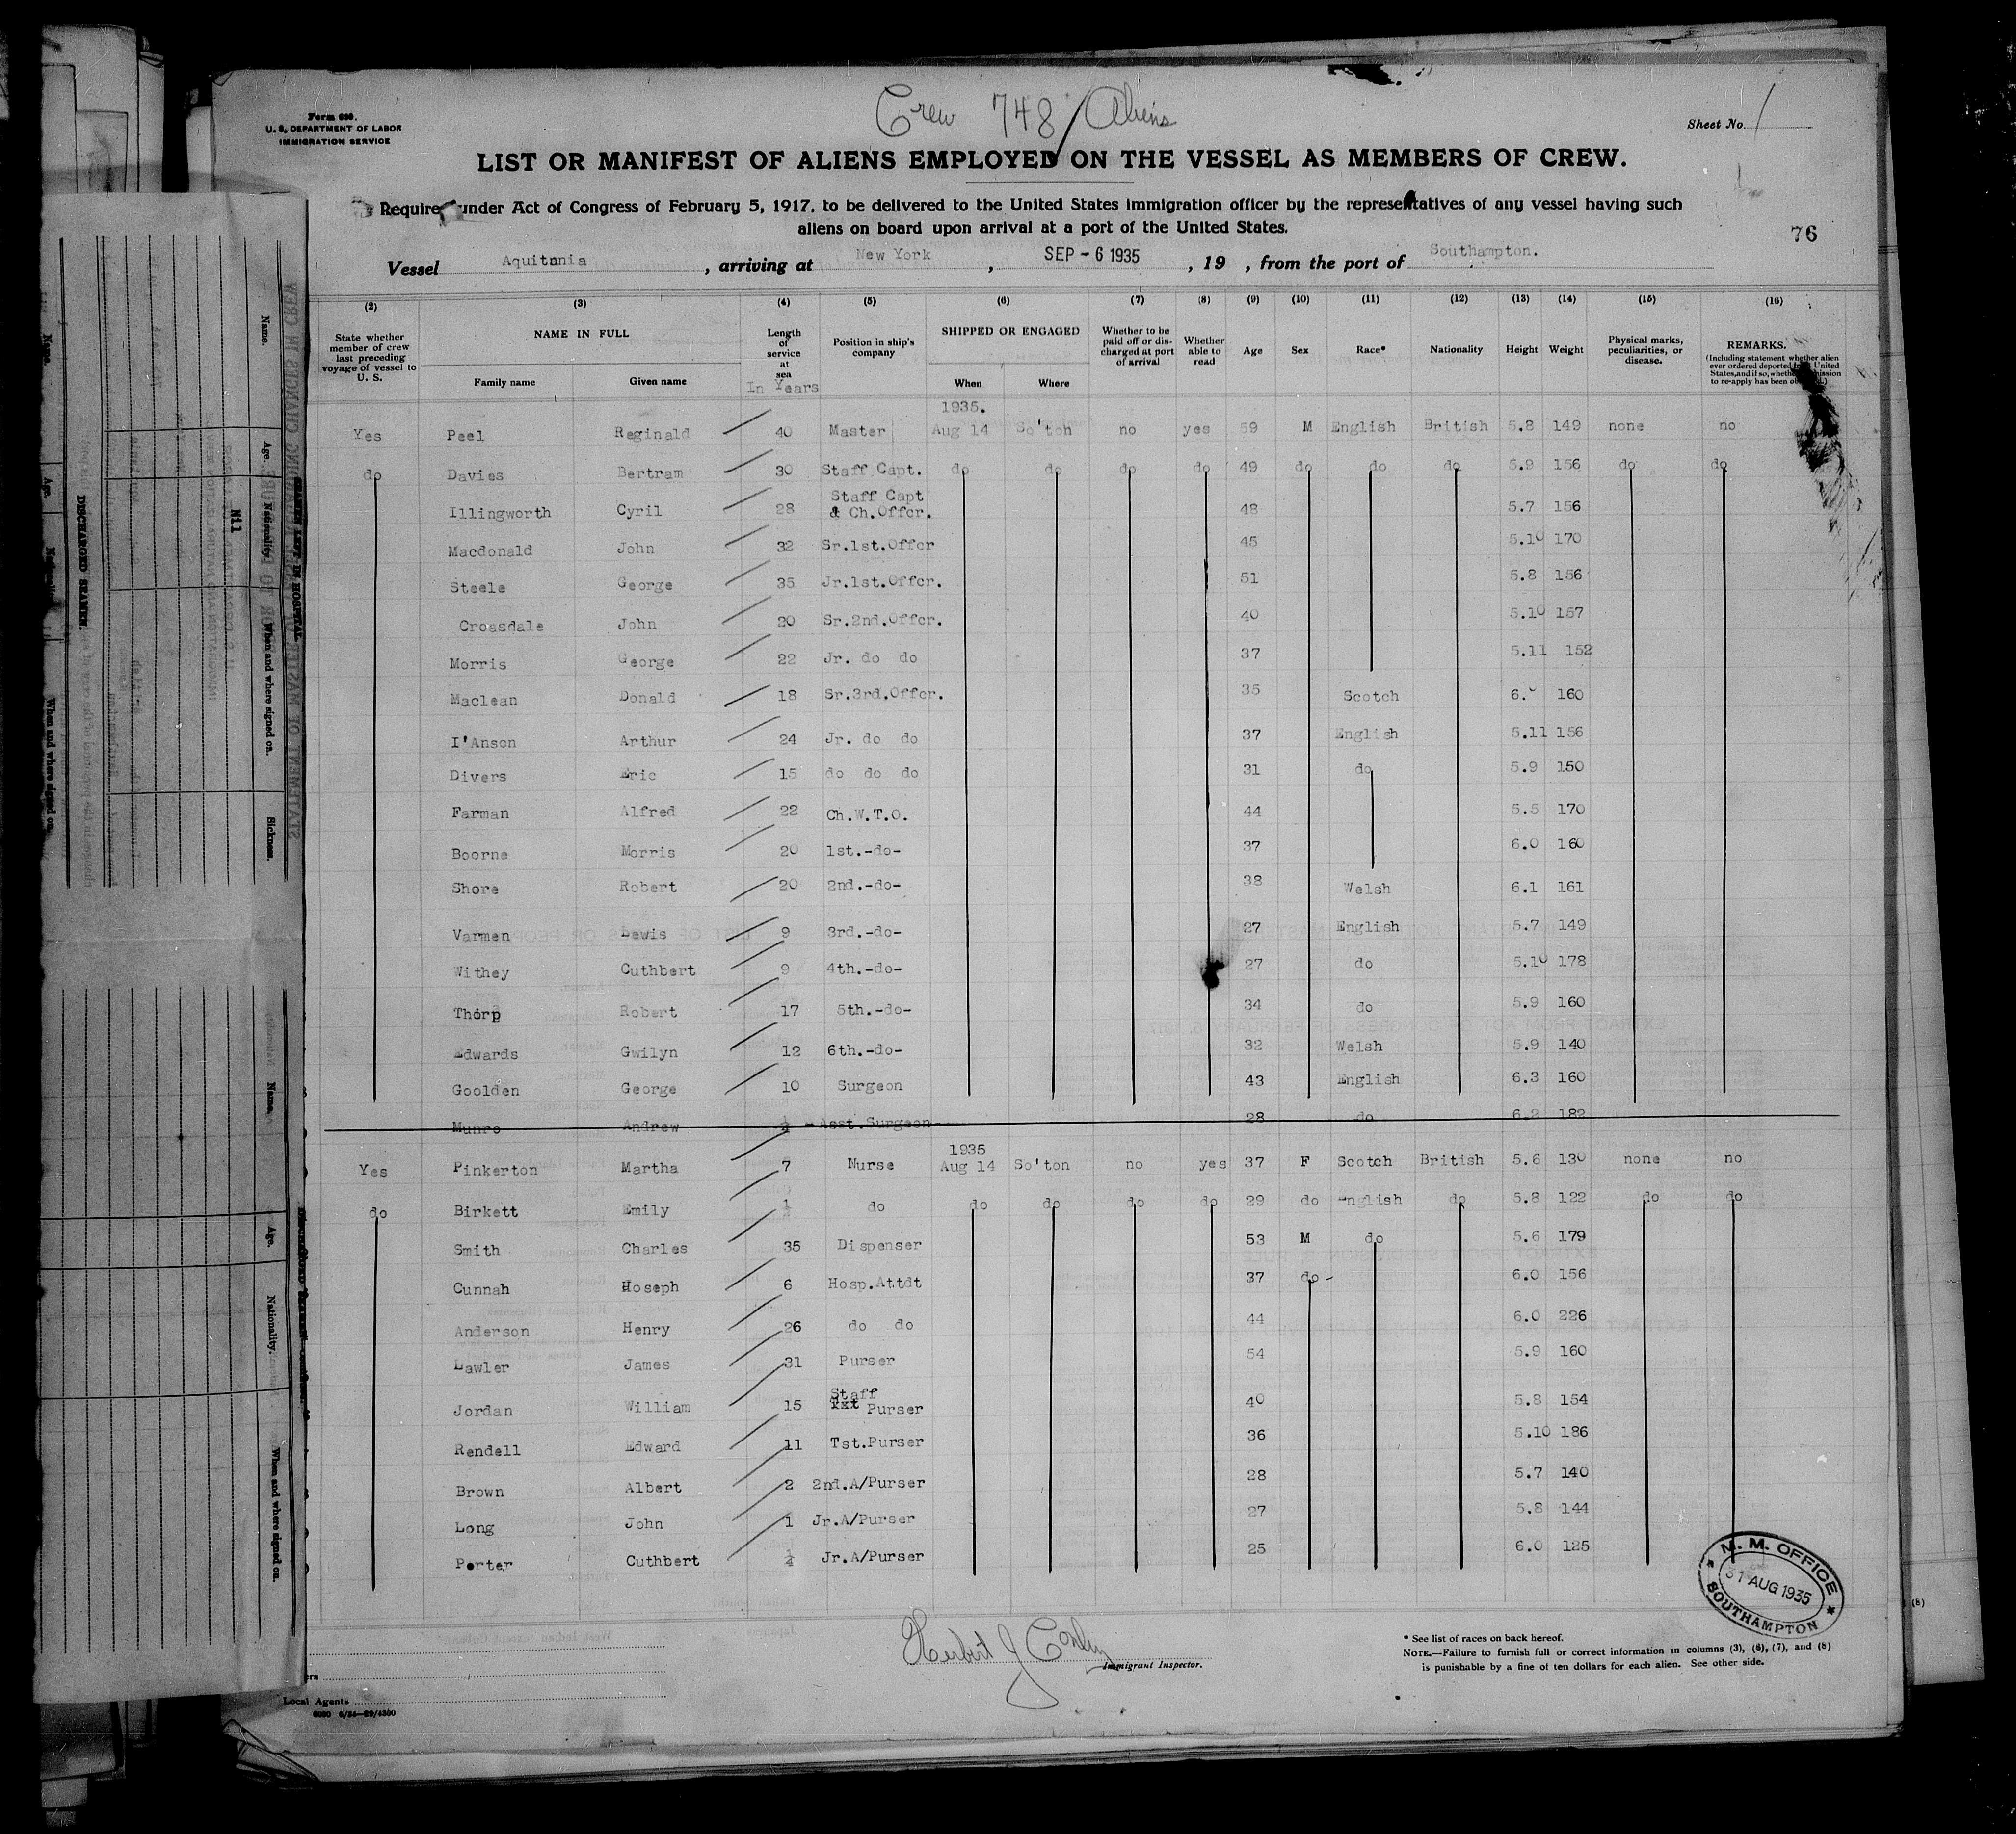 Crew 748 / Aliens
Form 680.
U. S. DEPARTMENT OF LABOR
IMMIGRATION SERVICE
Sheet No. 1
LIST OR MANIFEST OF ALIENS EMPLOYED ON THE VESSEL AS MEMBERS OF CREW.
Required under Act of Congress of February 5, 1917, to be delivered to the United States immigration officer by the representatives of any vessel having such
aliens on board upon arrival at a port of the United States.
76
Vessel Aquitania, arriving at New York, SEP - 6 1935, 19 , from the port of Southampton.
(2) (3) (4) (5) (6) (7) (8) (9) (10) (11) (12) (13) (14) (15) (16)
State whether member of crew last preceding voyage of vessel to U. S. NAME IN FULL Family name Given name Length of service at sea In Years Position in ship's company SHIPPED OR ENGAGED When Where Whether to be paid off or discharged at port of arrival Whether able to read Age Sex Race* Nationality Height Weight Physical marks, peculiarities, or disease. REMARKS. (Including statement whether alien ever ordered deported from United States, and if so, whether permission to re-apply has been obtained.)
1935.
Yes Peel Reginald 40 Master Aug 14 So'ton no yes 59 M English British 5.8 149 none no
do Davies Bertram 30 Staff Capt. do do do do 49 do do do 5.9 156 do do
Staff Capt
Illingworth Cyril 28 & Ch.Offcr. 48 5.7 156
Macdonald John 32 Sr.1st.Offcr 45 5.10 170
Steele George 35 Jr.1st.Offcr. 51 5.8 156
Croasdale John 20 Sr.2nd.Offcr. 40 5.10 167
Morris George 22 Jr. do do 37 5.11 152
Maclean Donald 18 Sr.3rd.Offcr. 35 Scotch 6.0 160
I'Anson Arthur 24 Jr. do do 37 English 5.11 156
Divers Eric 15 do do do 31 do 5.9 150
Farman Alfred 22 Ch.W.T.O. 44 5.5 170
Boorne Morris 20 1st.-do- 37 6.0 160
Shore Robert 20 2nd.-do- 38 Welsh 6.1 161
Varmen Lewis 9 3rd.-do- 27 English 5.7 149
Withey Cuthbert 9 4th.-do- 27 do 5.10 178
Thorp Robert 17 5th.-do- 34 do 5.9 160
Edwards Gwilyn 12 6th.-do- 32 Welsh 5.9 140
Goolden George 10 Surgeon 43 English 6.3 160
Munro Andrew Asst.Surgeon 28 do 6.2 182
1935
Yes Pinkerton Martha 7 Nurse Aug 14 So'ton no yes 37 F Scotch British 5.6 130 none no
do Birkett Emily do do do do do 29 do English do 5.8 122 do do
Smith Charles 35 Dispenser 53 M do 5.6 179
Cunnah Hoseph 6 Hosp.Attdt 37 do 6.0 156
Anderson Henry 26 do do 44 6.0 226
Lawler James 31 Purser 54 5.9 160
Staff
Jordan William 15 xxt Purser 40 5.8 154
Rendell Edward 11 Tst.Purser 36 5.10 186
Brown Albert 2 2nd.A/Purser 28 5.7 140
Long John 1 Jr.A/Purser 27 5.8 144
Porter Cuthbert 1/4 Jr.A/Purser 25 6.0 125
M. M. OFFICE
31 AUG 1935
SOUTHAMPTON
Herbert J Conley
Immigrant Inspector.
* See list of races on back hereof.
NOTE.—Failure to furnish full or correct information in columns (3), (6), (7), and (8)
is punishable by a fine of ten dollars for each alien. See other side.
Local Agents
6000 6/34—29/4300
Name. Age. Nationality. When and where signed on. Sickness.
Nil
SEAMEN LEFT IN HOSPITAL.
DISCHARGED SEAMEN.
Name. Age. Nationality. When and where signed on.
(8)